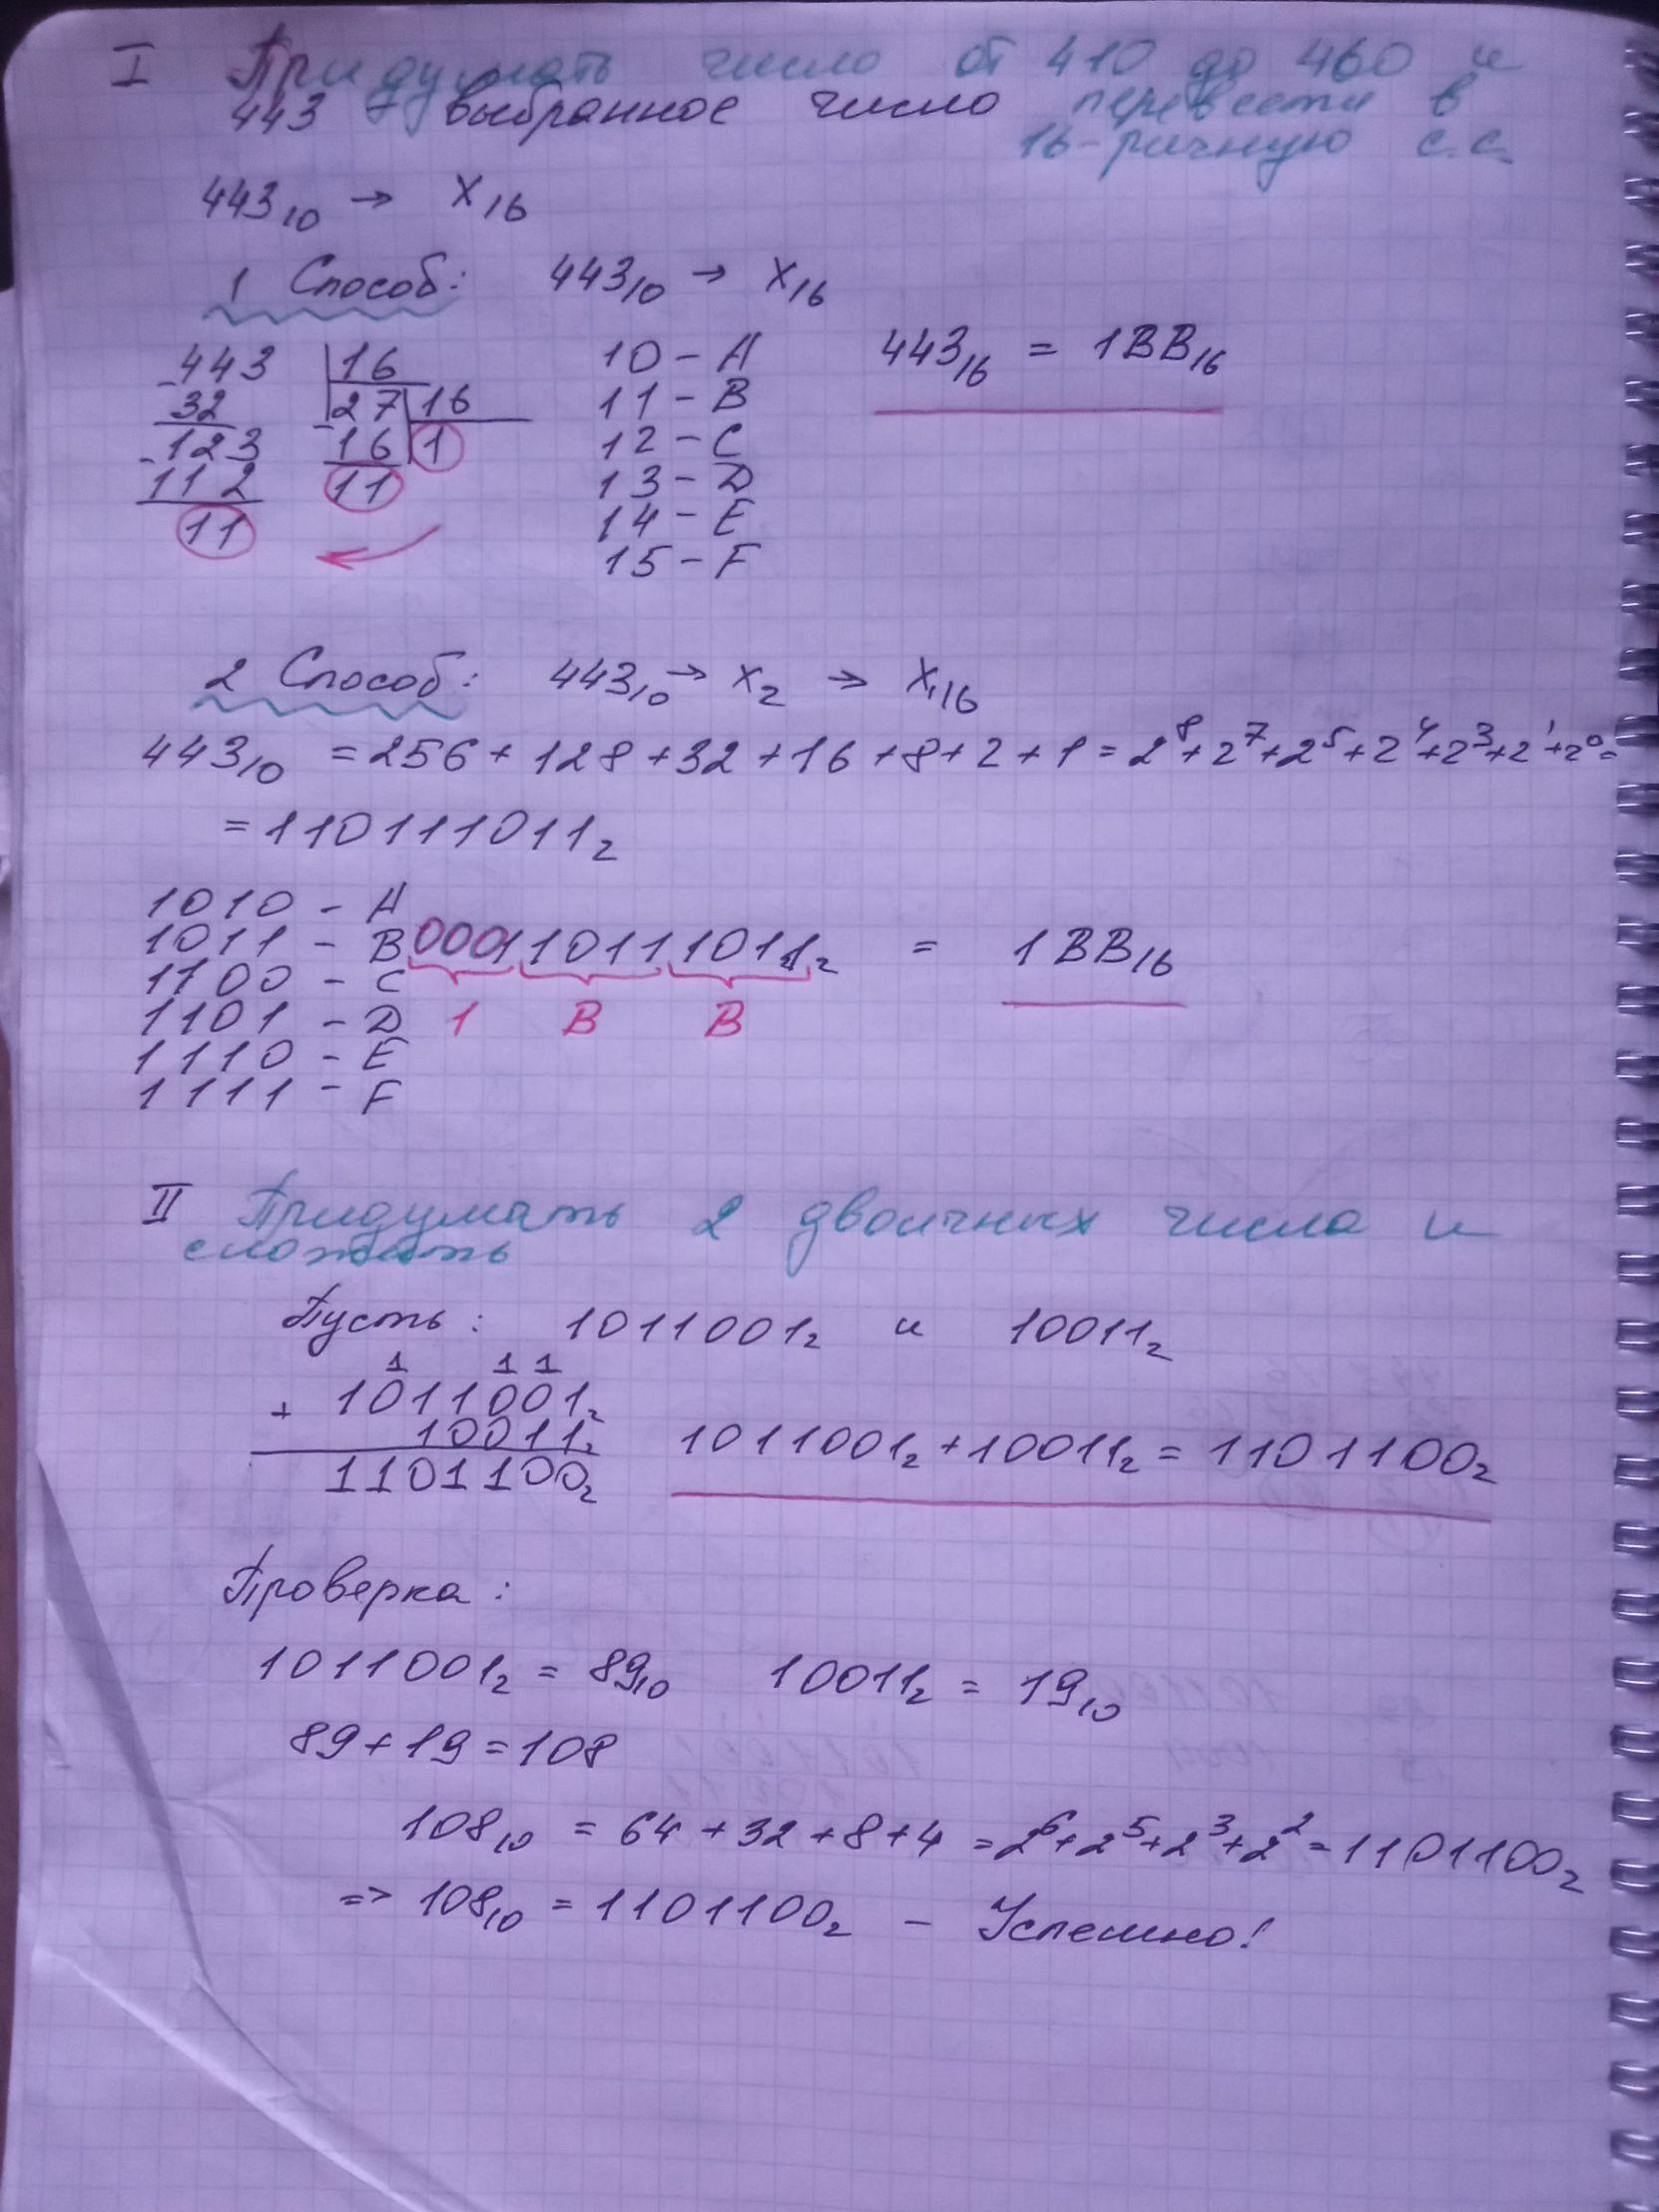 I Придумать число от 410 до 460 и
443 - выбранное число перевести в
16-ричную с.с.
443₁₀ → X₁₆
1 Способ: 443₁₀ → X₁₆
443 16 10 - A 443₁₆ = 1BB₁₆
- 32 27 16 11 - B
123 - 16 1 12 - C
- 112 11 13 - D
11 14 - E
15 - F
2 Способ: 443₁₀ → X₂ → X₁₆
443₁₀ = 256 + 128 + 32 + 16 + 8 + 2 + 1 = 2⁸ + 2⁷ + 2⁵ + 2⁴ + 2³ + 2¹ + 2⁰ =
= 110111011₂
1010 - A
1011 - B 000110111011₂ = 1BB₁₆
1100 - C
1101 - D 1 B B
1110 - E
1111 - F
II Придумать 2 двоичных числа и
сложить
Пусть: 1011001₂ и 10011₂
1 1 1
+ 1011001₂
10011₂ 1011001₂ + 10011₂ = 1101100₂
1101100₂
Проверка:
1011001₂ = 89₁₀ 10011₂ = 19₁₀
89 + 19 = 108
108₁₀ = 64 + 32 + 8 + 4 = 2⁶ + 2⁵ + 2³ + 2² = 1101100₂
=> 108₁₀ = 1101100₂ - Успешно!